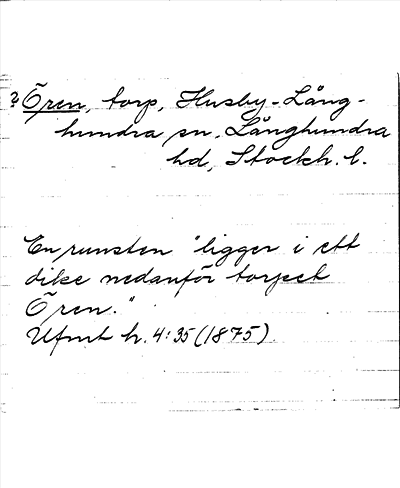 ? Ören, torp, Husby-Lång-
hundra sn, Långhundra
hd, Stockh. l.
En runsten "ligger i ett
dike nedanför torpet
Ören."
Ufmt h. 4:35 (1875)